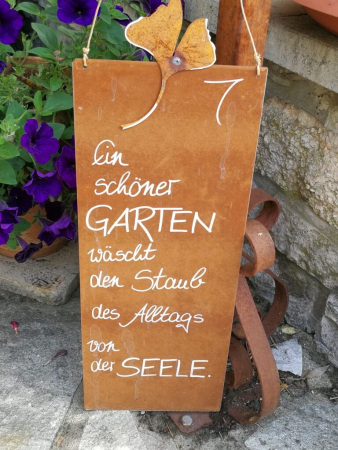 7
Ein
schöner
GARTEN
wäscht
den Staub
des Alltags
von
der SEELE.